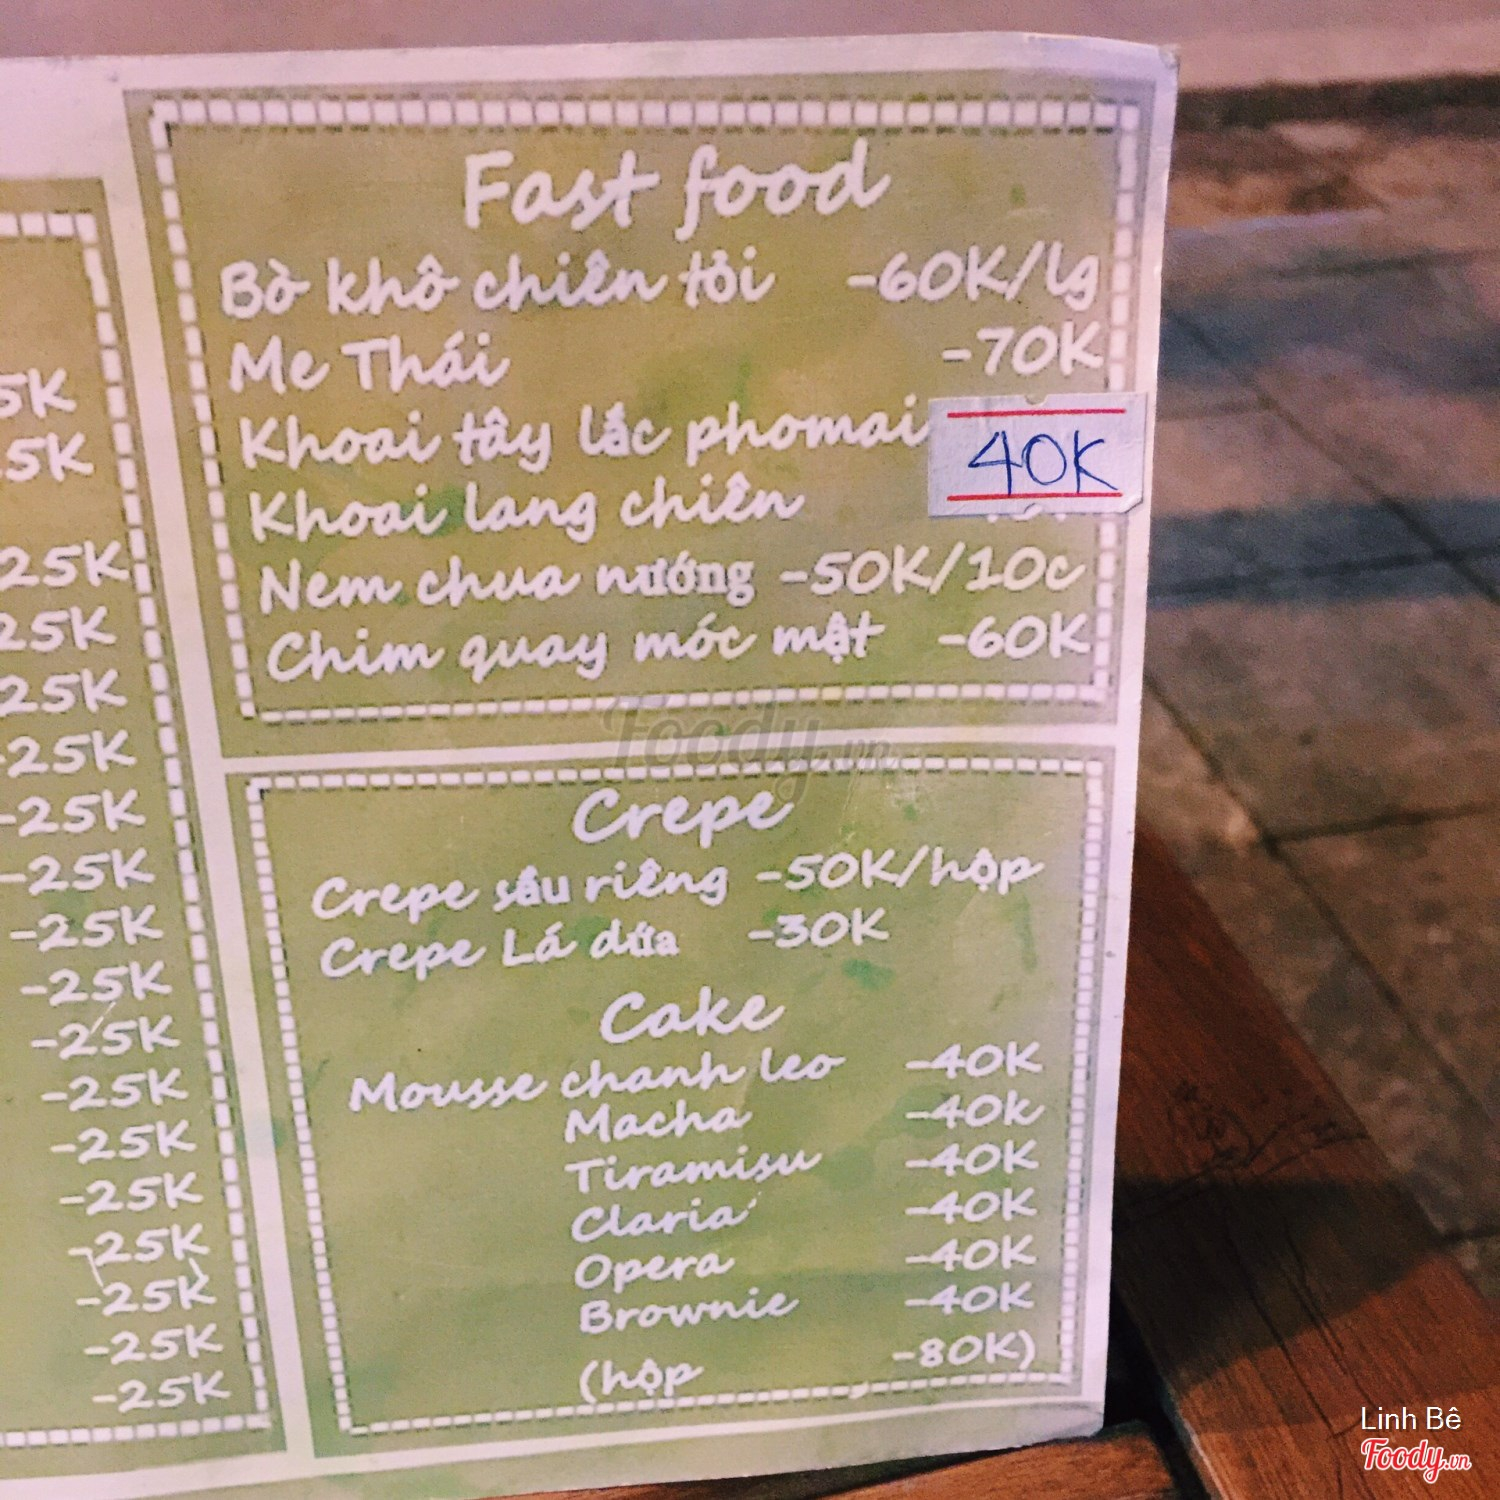 5K
5K
25K
25K
25K
-25K
-25K
-25K
-25K
-25K
-25K
-25K
-25K
-25K
-25K
-25K
-25K
-25K
Fast food
Bò khô chiên tỏi -60K/lg
Me Thái -70K
Khoai tây lắc phomai 40K
Khoai lang chiên
Nem chua nướng -50K/10c
Chim quay móc mật -60K
Foody.vn
Crepe
Crepe sầu riêng -50K/hộp
Crepe Lá dứa -30K
Cake
Mousse chanh leo -40K
Macha -40k
Tiramisu -40K
Claria -40K
Opera -40K
Brownie -40K
(hộp -80K)
Linh Bê
Foody.vn